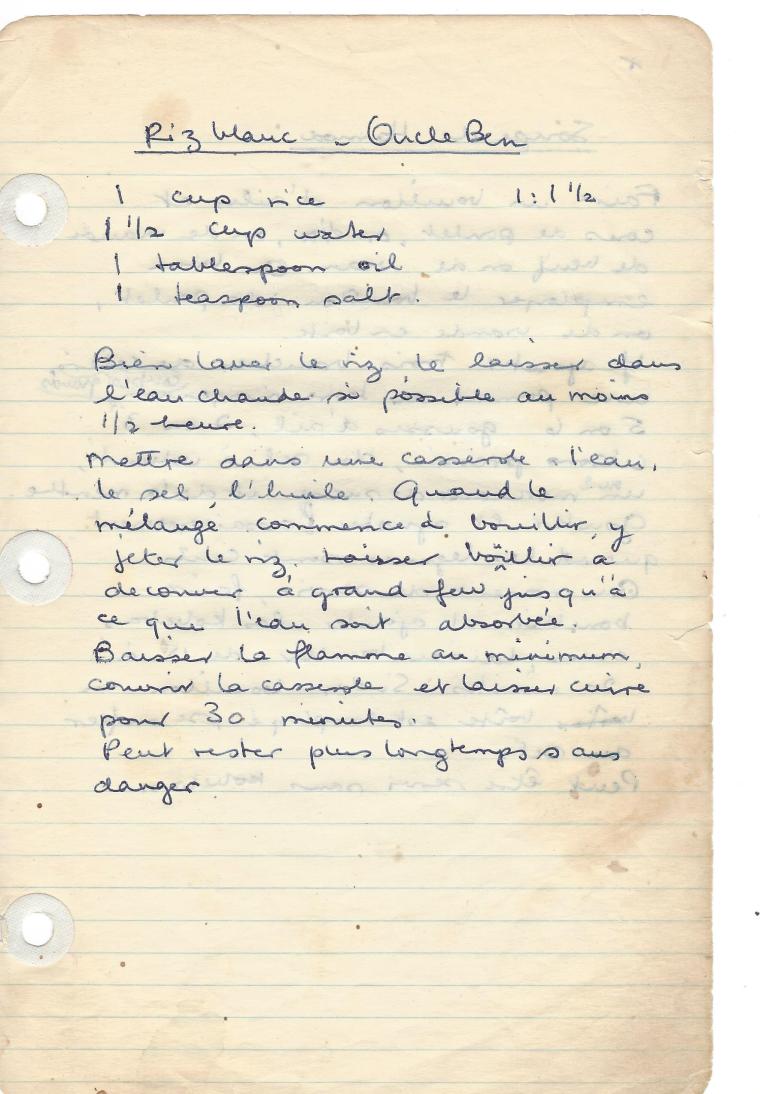 Riz blanc - Oncle Ben
1 cup rice 1:1 1/2
1 1/2 cup water
1 tablespoon oil
1 teaspoon salt.
Bien laver le riz le laisser dans
l'eau chaude si possible au moins
1/2 heure.
Mettre dans une casserole l'eau,
le sel, l'huile Quand le
mélange commence à bouillir, y
jeter le riz. Laisser bouillir à
decouver à grand feu jusqu'à
ce que l'eau soit absorbée.
Baisser la flamme au minimum,
couvrir la casserole et laisser cuire
pour 30 minutes.
Peut rester plus longtemps sans
danger